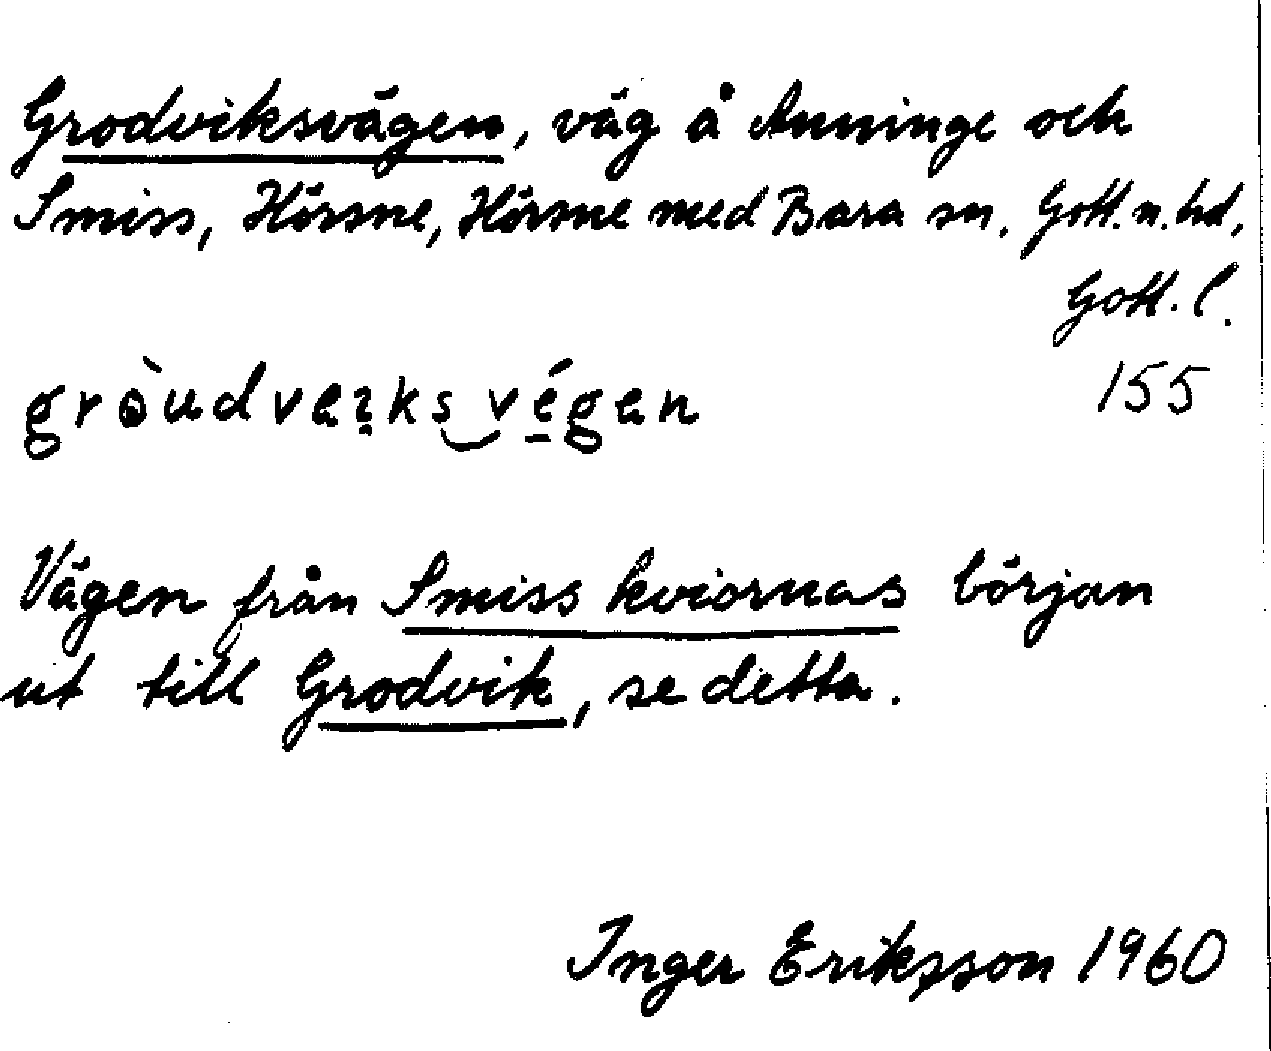 Grodviksvägen, väg å Anninge och
Smiss, Hörsne, Hörsne med Bara sn, Gotl. n. hd,
Gotl. l.
155
gròudveɩks végen
Vägen från Smiss kviornas början
ut till Grodvik, se detta.
Inger Eriksson 1960